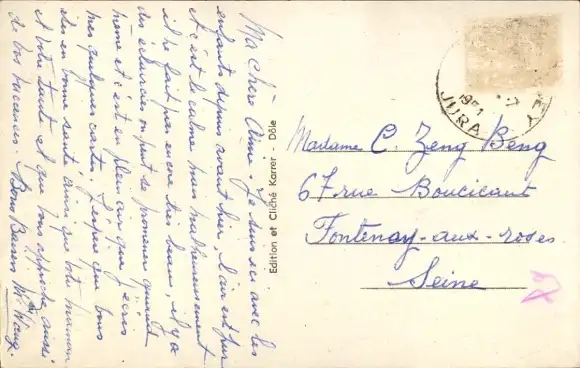 Ma chère Aimée. Je suis ici avec les
enfants depuis avant hier, l'air est pur
et c'est le calme mais malheureusement
il ne fait pas encore très beau, il y a
des éclaircies on peut se promener quand
même et c'est en plein air que j'écris
mes quelques cartes. J'espère que vous
êtes en bonne santé ainsi que votre maman
et votre tante et que vous approchez aussi
de vos vacances. Bons Baisers M. Wang.
Edition et Cliché Karrer - Dôle
1951
7
JURA
EY
Madame C. Zeng Beng
67 rue Boucicaut
Fontenay-aux-roses
Seine